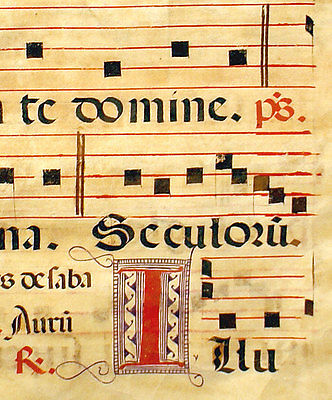 te domine. p̄s.
na. Seculorū.
s de saba
Aurū
R. I llu